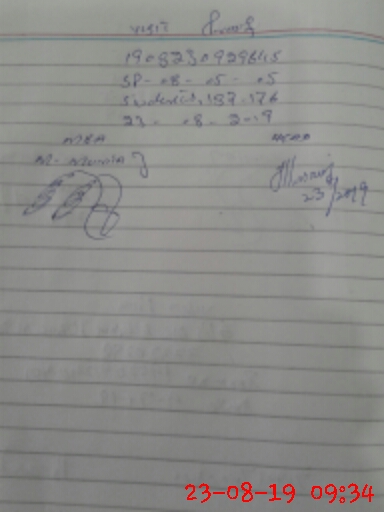 visit
190823092964 5
SP - 08 - 05 - 05
Students, 187-176
23 - 08 - 2019
MEA HEAD
M.
23/2019
23-08-19 09:34